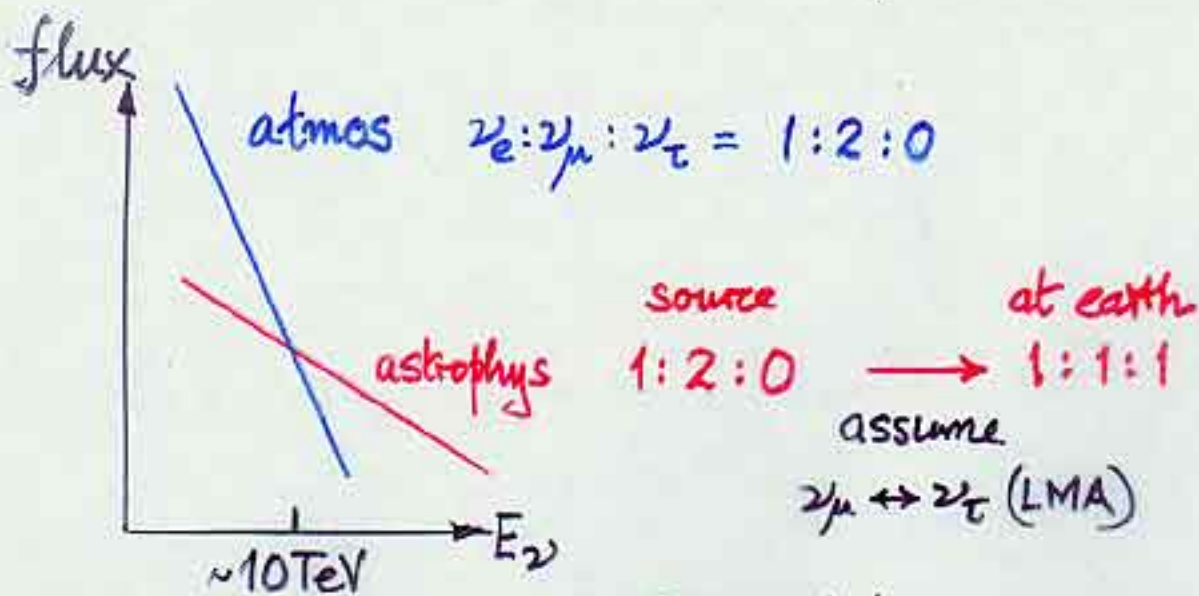 flux
atmos ν_e:ν_μ:ν_τ = 1:2:0
source at earth
astrophys 1:2:0 → 1:1:1
assume
ν_μ ↔ ν_τ (LMA)
E_ν
~10TeV